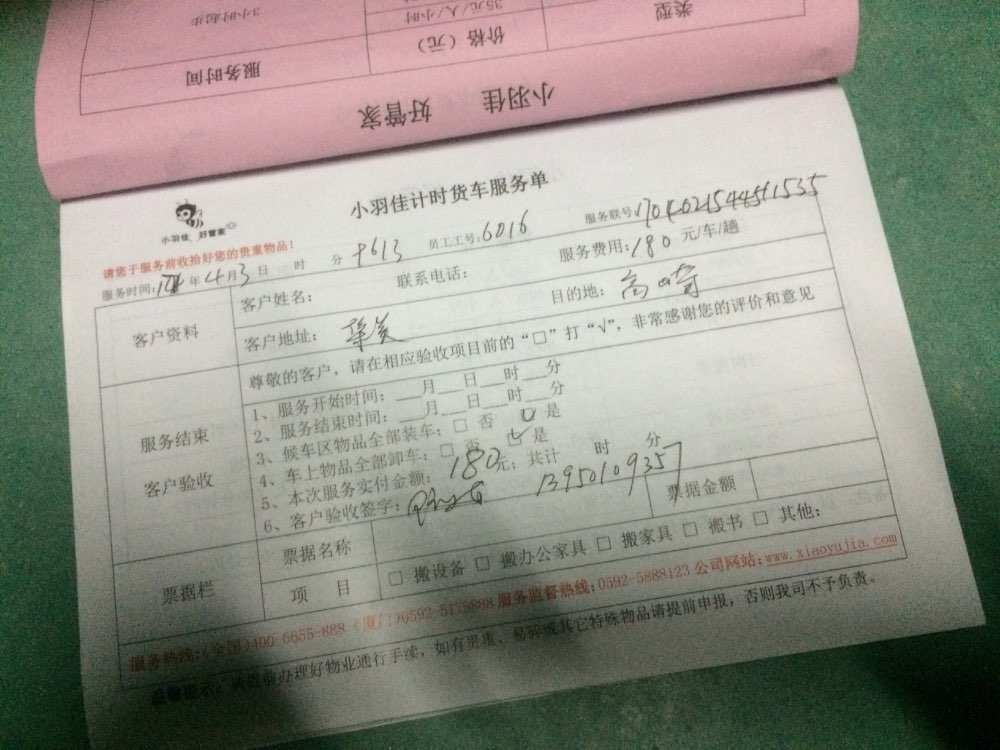 类型 价格（元） 服务时间
35元/人/小时 3小时起步
小羽佳 好管家
小羽佳计时货车服务单
小羽佳 好管家
请您于服务前收拾好您的贵重物品！
服务时间： 年 4月3日 时 分 员工工号：6016 服务联号：
客户资料
客户姓名： 联系电话： 服务费用：180 元/车/趟
客户地址：华美 目的地：高崎
服务结束
客户验收
尊敬的客户，请在相应验收项目前的“□”打“√”，非常感谢您的评价和意见
1、服务开始时间：___月___日___时___分
2、服务结束时间：___月___日___时___分
3、候车区物品全部装车：□ 否 ☑ 是
4、车上物品全部卸车：□ 否 ☑ 是
5、本次服务实付金额：180元；共计 时 分
6、客户验收签字： 13950109357
票据栏
票据名称 票据金额
项 目 □ 搬设备 □ 搬办公家具 □ 搬家具 □ 搬书 □ 其他：
服务热线：(全国)400-6655-888 (厦门)0592-5175888 服务监督热线：0592-5888123 公司网站：www.xiaoyujia.com
办理好物业通行手续，如有贵重、易碎或其它特殊物品请提前申报，否则我司不予负责。